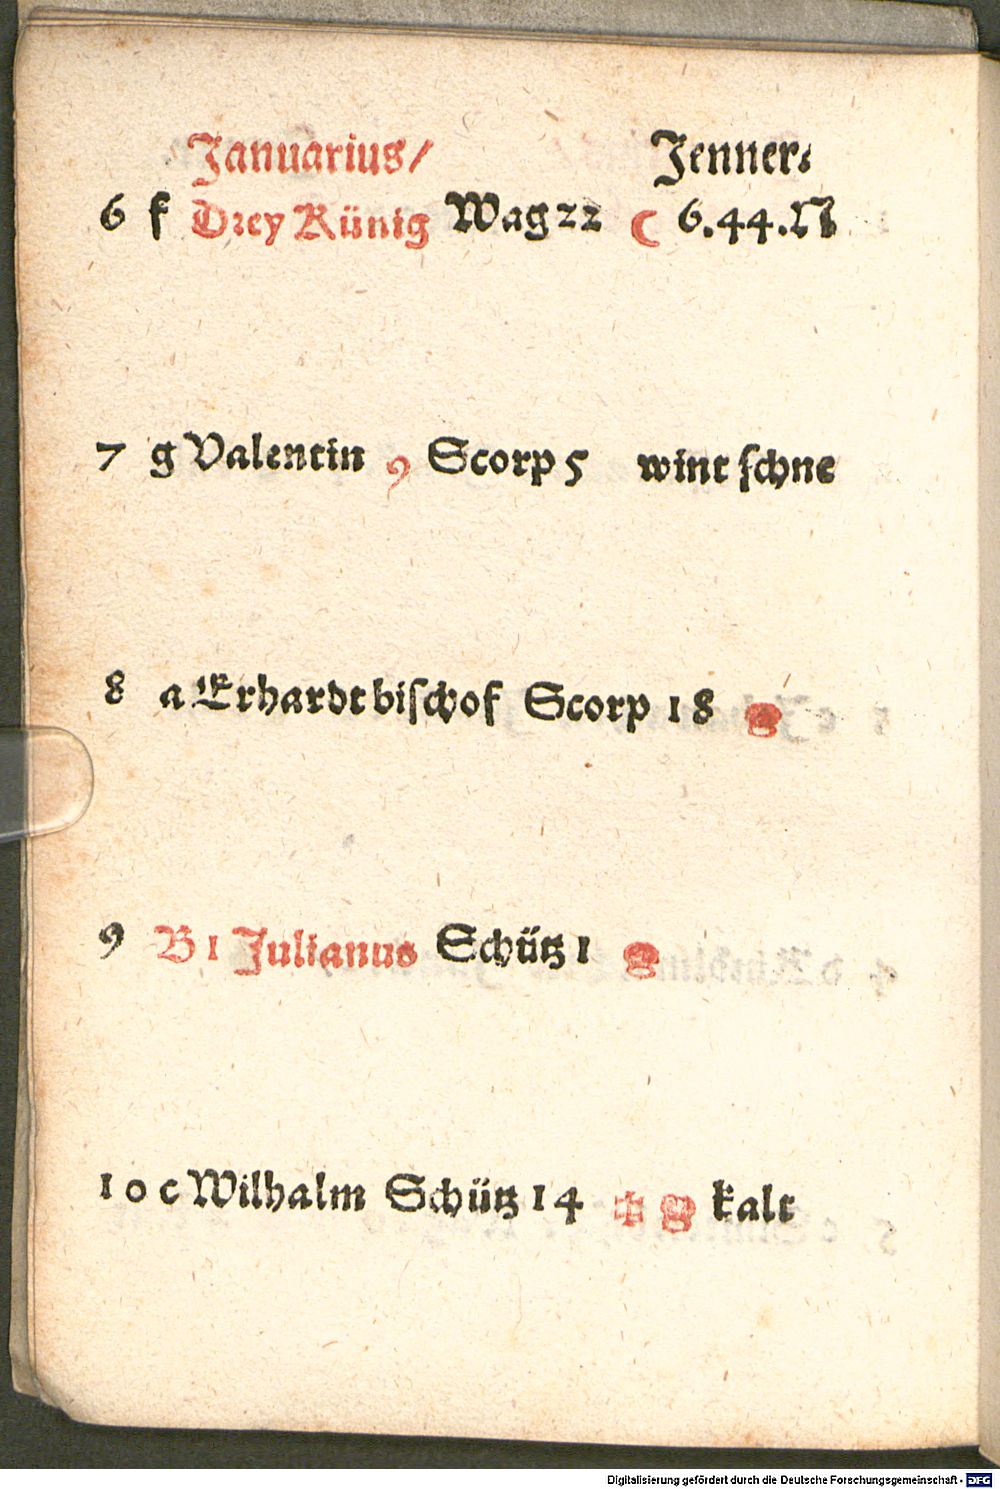 Januarius/ Jenner.
6 f Drey Künig Wag 22 ☾ 6.44.N
7 g Valentin Scorp 5 wint schne
8 a Erhardt bischof Scorp 18
9 B 1 Julianus Schütz 1
10 c Wilhalm Schütz 14 kalt
Digitalisierung gefördert durch die Deutsche Forschungsgemeinschaft - DFG